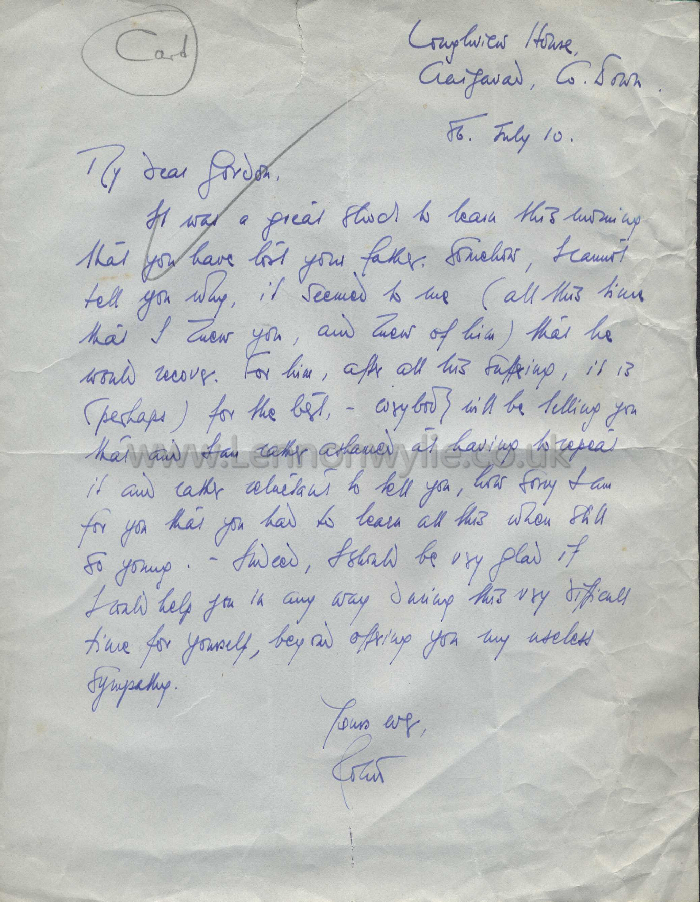 Card
Loughview House,
Craigavad, Co. Down.
56. July 10.
My dear Gordon,
It was a great shock to learn this morning
that you have lost your father. Somehow, I cannot
tell you why, it seemed to me (all this time
that I knew you, and knew of him) that he
would recover. For him, after all his suffering, it is
(perhaps) for the best, - everybody will be telling you
that and I am rather ashamed at having to repeat
it and rather reluctant to tell you, how sorry I am
for you that you had to learn all this when still
so young. - Indeed, I should be very glad if
I could help you in any way during this very difficult
time for yourself, beyond offering you my useless
sympathy.
Yours ever,
www.Lennonwylie.co.uk